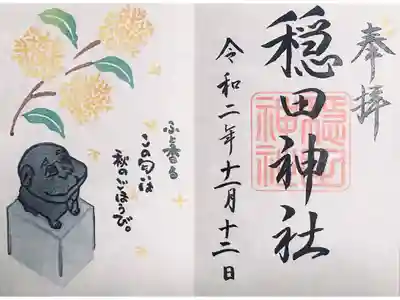 奉拝
穏田神社
穏田
神社
令和二年十一月十二日
ふと香る
この匂いは
秋のごほうび。